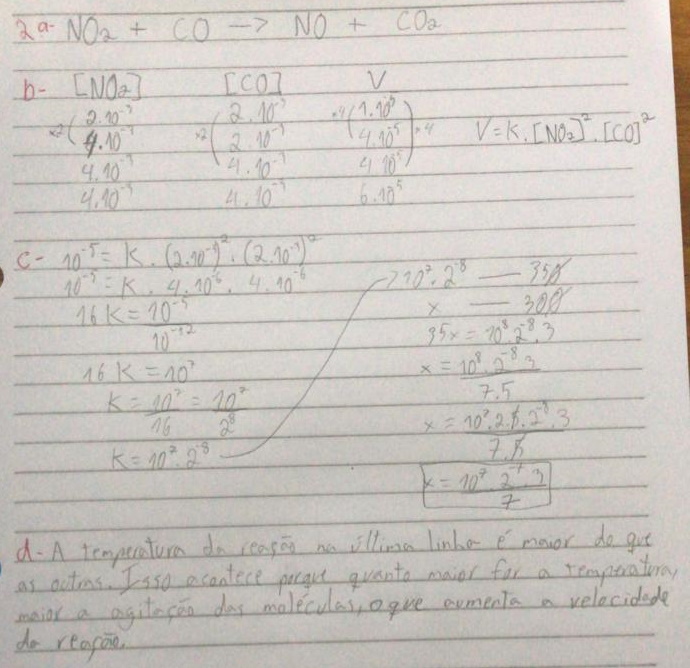 2a- NO₂ + CO —> NO + CO₂
b- [NO₂] [CO] V
2.10⁻³ 2.10⁻³ 1.10⁵
×2 ( 4.10⁻³ ×2 ( 2.10⁻³ ×4 ( 4.10⁻⁵ ) ×4 V=K.[NO₂]².[CO]²
4.10⁻³ 4.10⁻³ 4.10⁵
4.10⁻³ 4.10⁻³ 6.10⁵
c- 10⁻⁵ = K . (2.10⁻³)² . (2.10⁻³)²
10⁻⁵ = K . 4.10⁻⁶ . 4.10⁻⁶
16 K = 10⁻⁵
10⁻¹²
16 K = 10⁷
K = 10⁷ = 10⁷
16 2⁸
K = 10⁷.2⁻⁸
10⁷.2⁻⁸ — 350
x — 300
35x = 10⁸.2⁻⁸.3
x = 10⁸.2⁻⁸.3
7.5
x = 10⁷.2.5.2⁻⁸.3
7.5
x = 10⁷.2⁻⁷.3
7
d- A temperatura da reação na última linha é maior do que
as outras. Isso acontece porque quanto maior for a temperatura,
maior a agitação das moléculas, o que aumenta a velocidade
da reação.